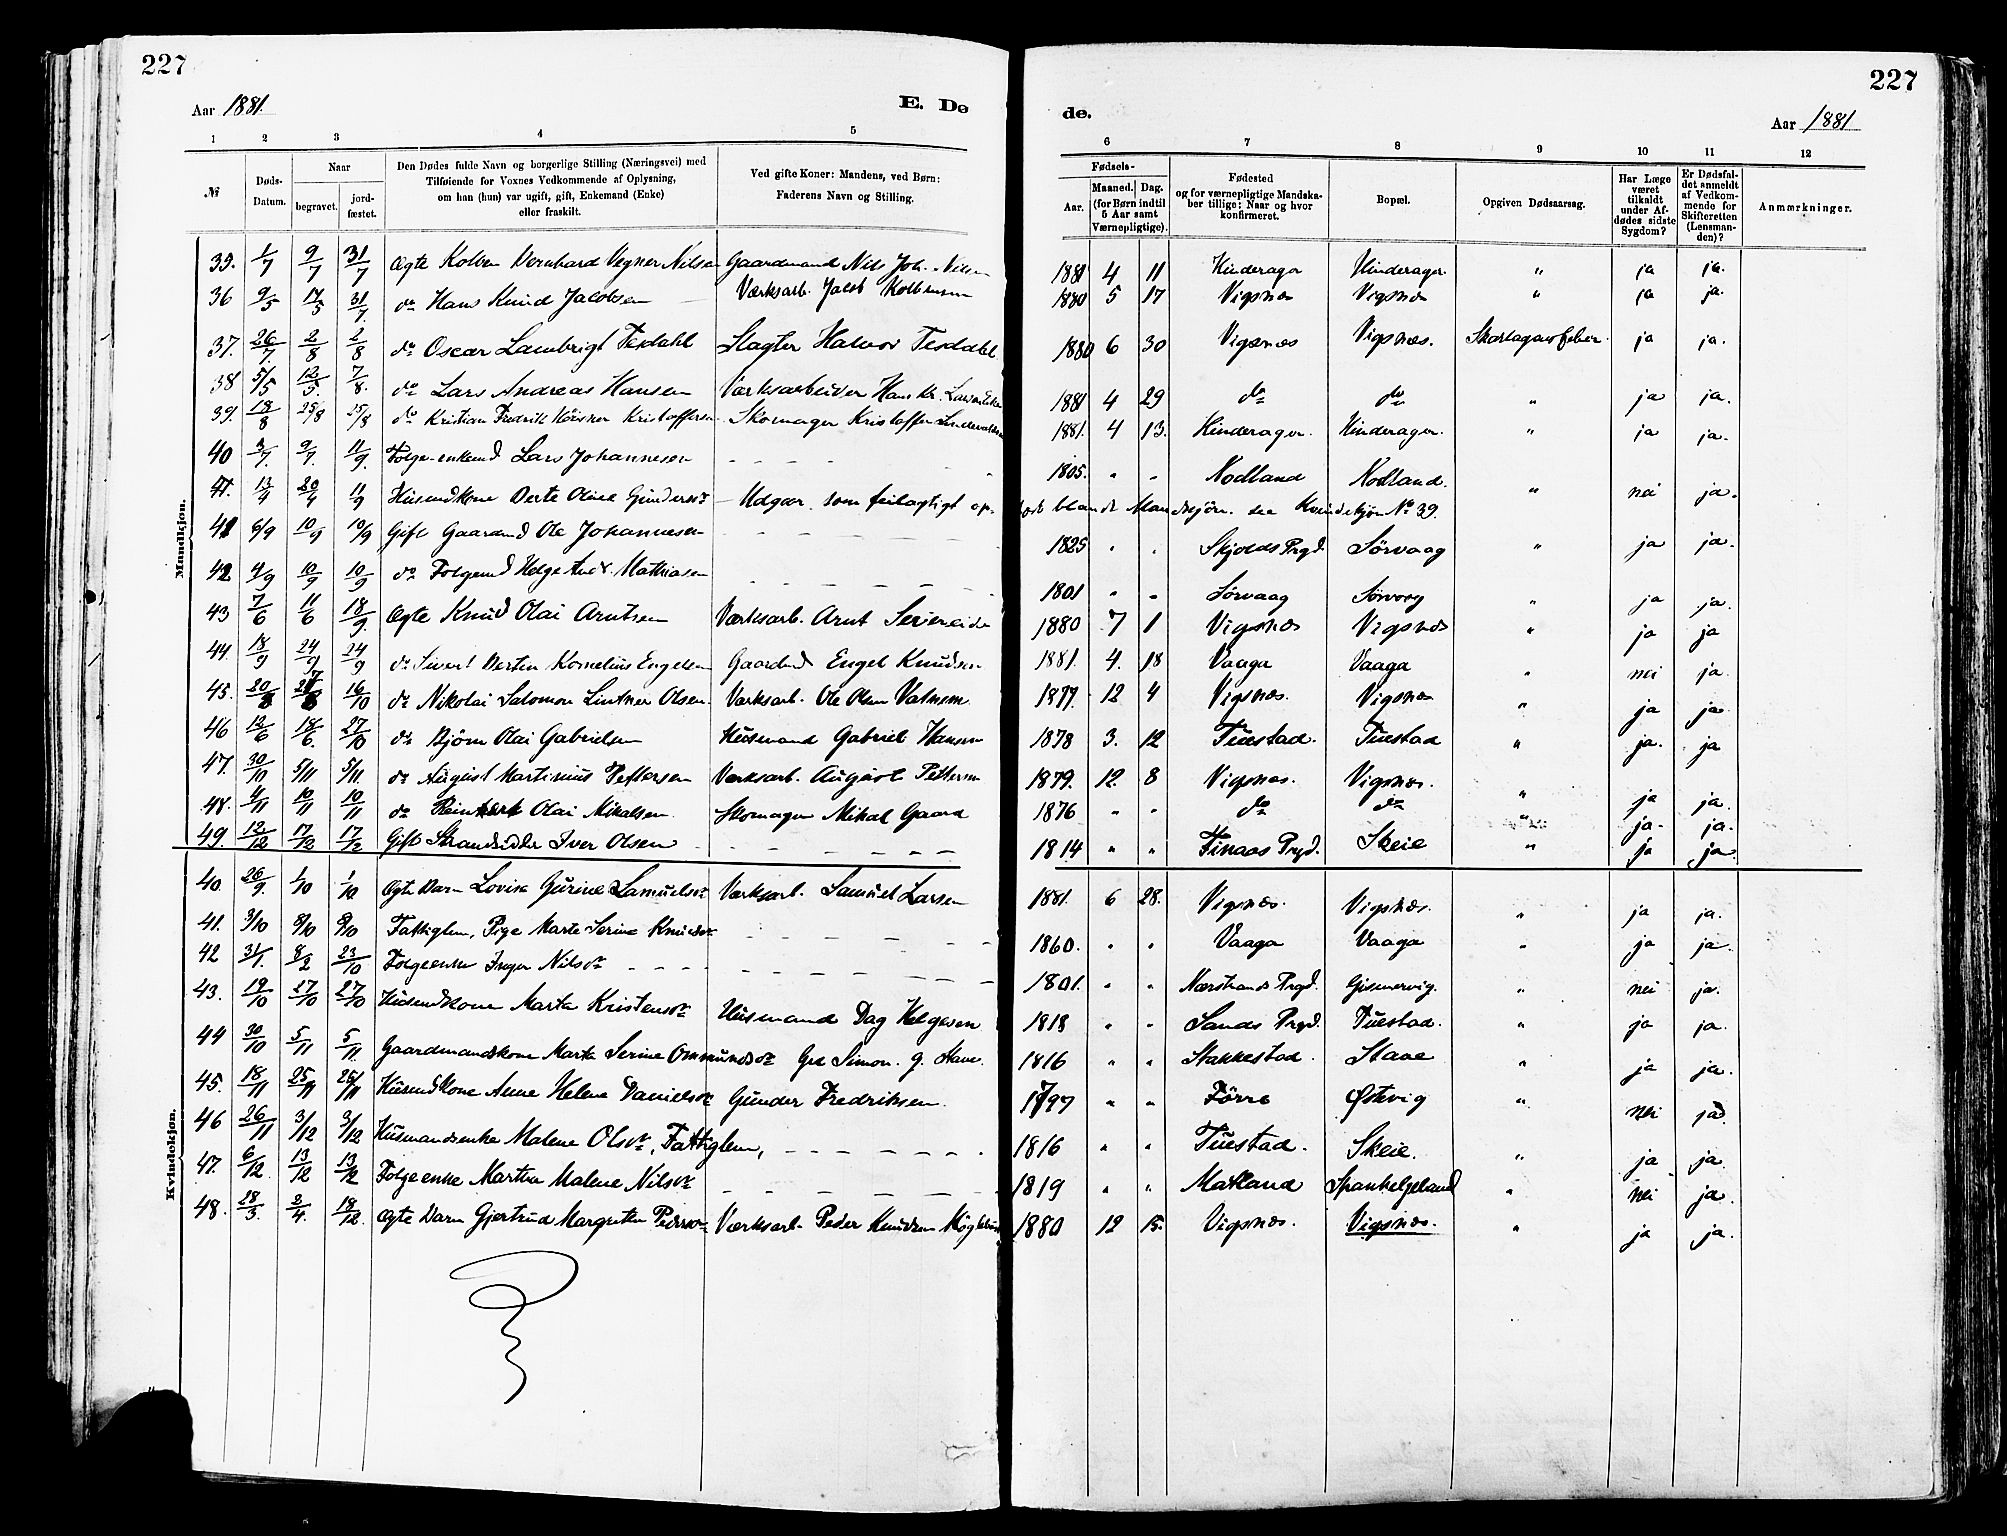 227
227
Aar 1881.
E. Dø
de.
Aar 1881
1 2 3 4 5 6 7 8 9 10 11 12
№ Døds-Datum. Naar begravet. jord-fæstet. Den Dødes fulde Navn og borgerlige Stilling (Næringsvei) med Tilføiende for Voxnes Vedkommende af Oplysning, om han (hun) var ugift, gift, Enkemand (Enke) eller fraskilt. Ved gifte Koner: Mandens, ved Børn: Faderens Navn og Stilling. Fødsels- Aar. Maaned. Dag. (for Børn indtil 5 Aar samt Værnepligtige). Fødested og for værnepligtige Mandskaber tillige: Naar og hvor konfirmeret. Bopæl. Opgiven Dødsaarsag. Har Læge været tilkaldt under Afdødes sidste Sygdom? Er Dødsfaldet anmeldt af Vedkommende for Skifteretten (Lensmanden)? Anmærkninger.
Mandkjøn.
39. 1/7 9/7 31/7 Ægte Vernhard Vegner Nilsen Gaardmand Nils Joh. Nilsen 1881 4 11 Hinderager Hinderager " ja ja.
36 9/5 17/5 31/7 do Hans Knud Jacobsen Værksarb. Jacob 1880 5 17 Vigsnæs Vigsnæs " ja ja.
37. 26/7. 2/8 2/8 do Oscar Lambrigt Tesdahl Slagter Halvor Tesdahl 1880 6 30 Vigsnæs Vigsnæs. Skarlagensfeber ja ja.
38 5/5 12/5. 7/8. do Lars Andreas Hansen Værksarbeider Hans Kr. 1881 4 29 do do " ja ja.
39. 18/8 25/8 25/8 do Kristian Fredrik Kristoffersen Skomager Kristoffer 1881. 4 13. Hinderager. Hinderager. " ja ja.
40 3/7. 9/7. 11/9. Folge-enkemd Lars Johannesen - - - - 1805. " - Nodland Nodland.
41. 13/4 20/4 11/9 Husmdkone Berte Oline Gundersdr - Udgaar, som feilagtigt op- ført blandt Mandkjøn. see Kvindekjøn No 39. " nei ja.
41 6/9 10/9 10/9 Gift Gaardmd Ole Johannesen - - - - 1825 " " Skjolds Prgd. Sørvaag " ja ja.
42 4/9 10/9 10/9 do Folgemd Helge And. Mathiasen - - - - 1801 " " Sørvaag Sørvaag " ja ja.
43 7/6 11/6 18/9. Ægte Knud Olai Arntsen Værksarb. Arnt 1880 7 1 Vigsnæs Vigsnæs " ja ja
44. 18/9 24/9 24/9 do Sivert Bertin Kornelius Engelsen Gaardmd Engel Knudsen 1881. 4. 18 Vaaga Vaaga " nei ja.
45. 20/8 16/10 do Nikolai Salomon Lintner Olsen. Værksarb. Ole Olsen 1877. 12 4 Vigsnæs. Vigsnæs " ja ja.
46 12/6 18/6. 27/10 do Bjørn Olai Gabrielsen Husmand Gabriel Hansen 1878 3. 12 Tuestad. Tuestad " ja. ja
47. 30/10 5/11 5/11 do August Martinius Pettersen Værksarb. August Pettersen 1879. 12. 8 Vigsnæs. Vigsnæs. " ja ja.
48. 4/11 10/11 10/11 do Olai Mikalsen. Skomager Mikal Gaard 1876 " " do do " ja. ja.
49. 12/12 17/12 17/12 Gift Strandsidder Iver Olsen - - - - 1814 " " Finaas Prgd. Skeie " ja ja.
Kvindekjøn.
40. 26/9. 1/10 1/10 Ægte Barn Lovise Gurine Samuelsdr Værksarb. Samuel Larsen 1881. 6 28. Vigsnæs. Vigsnæs. " ja ja.
41. 3/10 8/10 8/10 Fattiglem, Pige Marte Serine Knudsdr - - - - 1860. " " Vaaga Vaaga " ja ja.
42 31/1. 8/2 23/10 Folgeenke Inger Nilsdr - - - - 1801. " " Nærstrands Prgd. Gismervig. " nei ja.
43. 19/10 27/10 27/10 Husmdkone Marta Kristensdr Husmand Dag Helgesen 1818 " " Sands Prgd. Tuestad. " ja ja.
44 30/10 5/11 5/11 Gaardmandskone Marta Serine Ommundsdr Gd Simon. G. Stave. 1816 " " Stakkestad. Stave " ja ja.
45. 18/11 25/11 25/11 Husmdkone Anne Helene Danielsdr Gunder Fredriksen. 1797 " " Førre Østvig " nei ja.
46 26/11 3/12 3/12 Husmandsenke Malene Olsdr, Fattiglem, - - - - 1816 " " Tuestad. Skeie. " ja ja.
47. 6/12 13/12 13/12 Folgeenke Martha Malene Nilsdr - - - - 1819 " " Matland Spanhelgeland " nei ja.
48. 28/3. 2/4. 18/12. Ægte Barn Gjertrud Margrethe Pedersdr Værksarb. Peder Knudsen 1880 12 15. Vigsnæs. Vigsnæs. " ja ja.